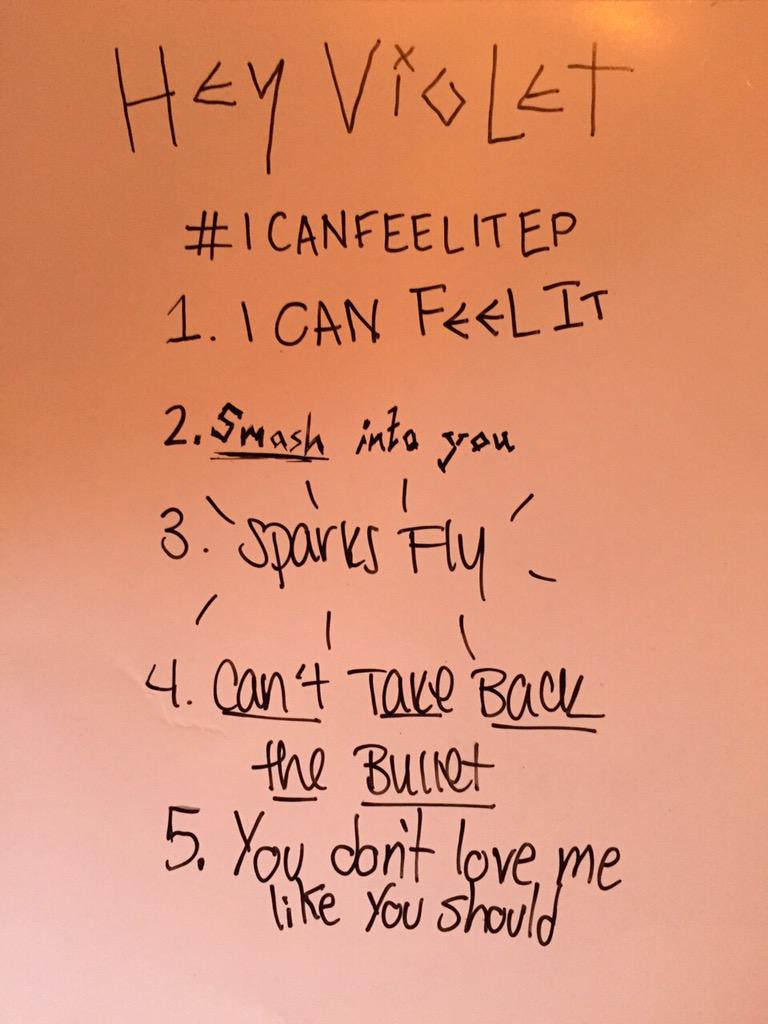 HEY VIOLET
#ICANFEELITEP
1. I CAN FEEL IT
2. Smash into you
3. Sparks Fly
4. Can't Take Back
the Bullet
5. You don't love me
like you should